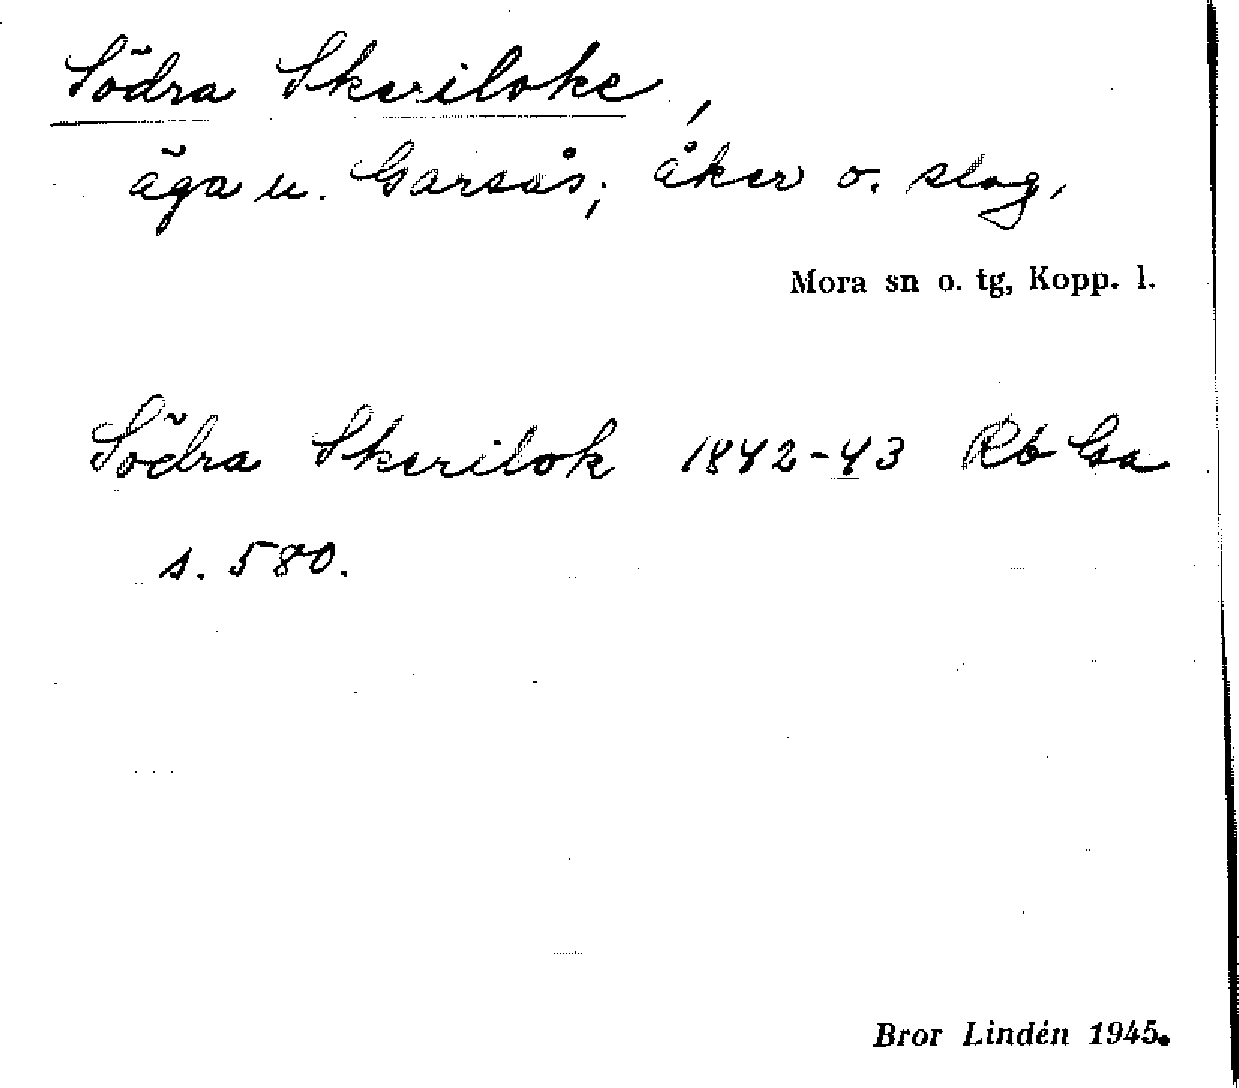 Södra Skeriloke,
äga u. Garsås; åker o. slog,
Mora sn o. tg, Kopp. l.
Södra Skerilok 1842-43 Rb Ga
s. 580.
Bror Lindén 1945.